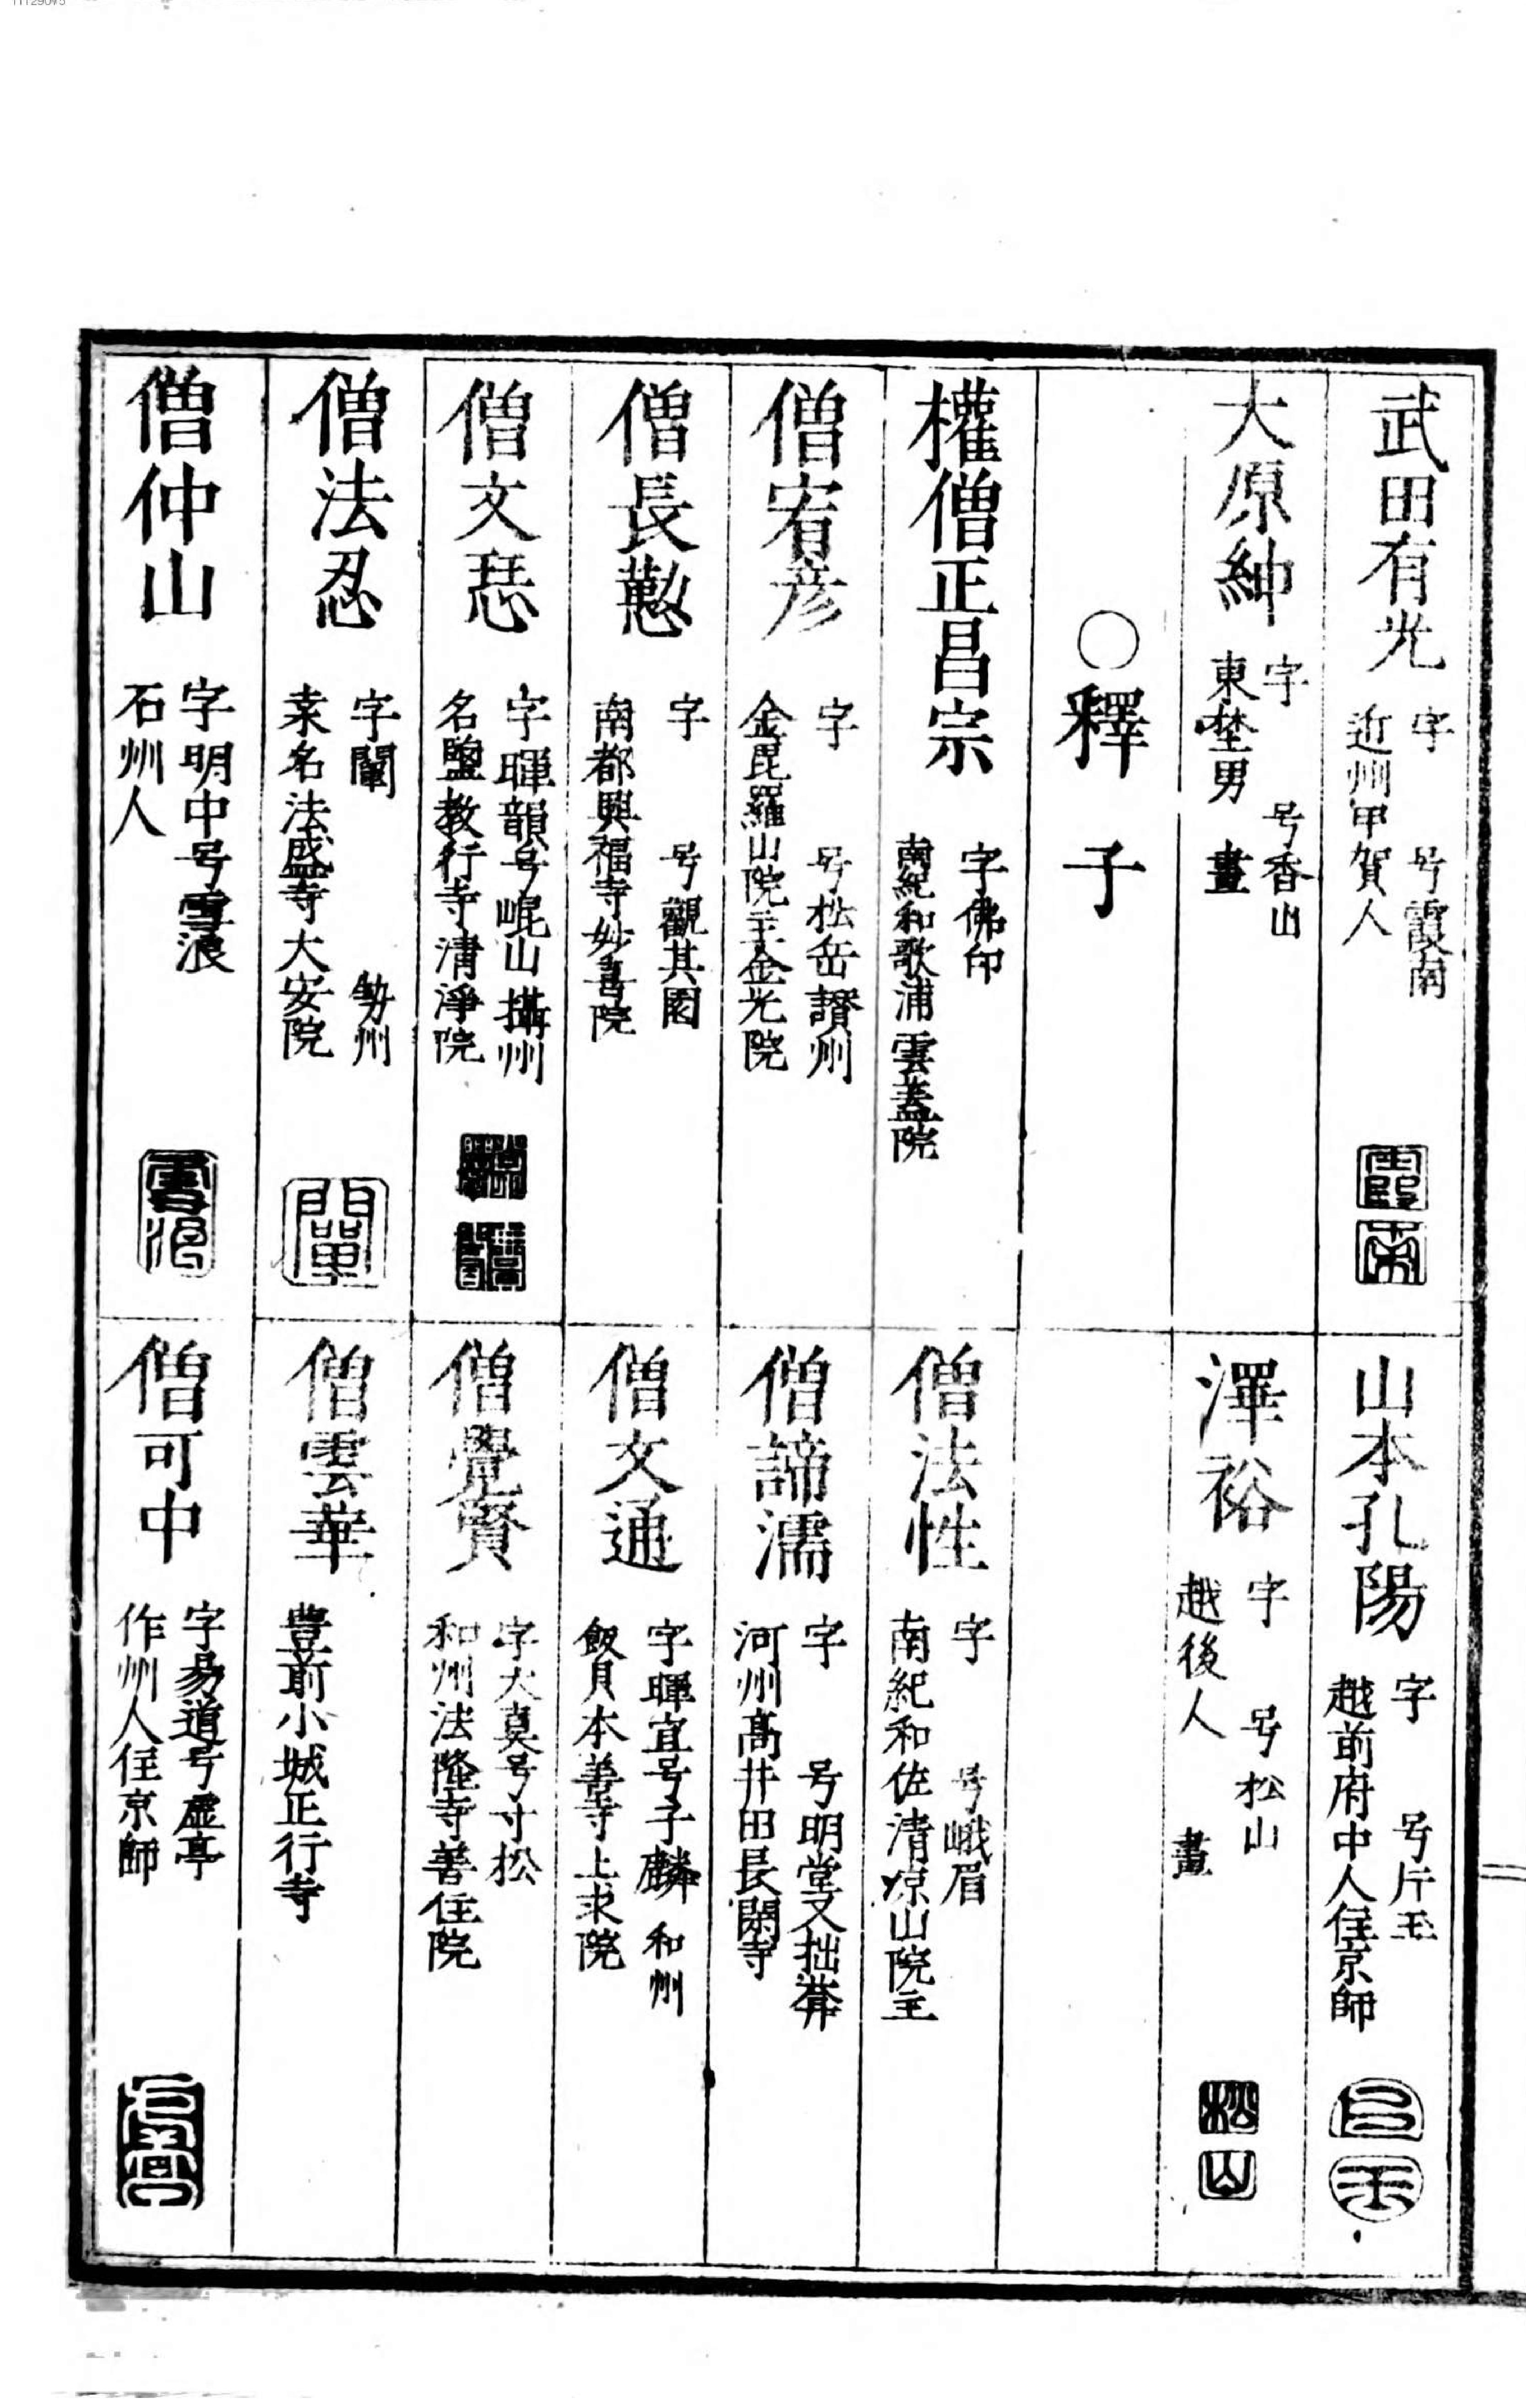 武田有光
字　号霞南
近州甲賀人
霞南
大原紳
字　号香山
東埜男　畫
○釋子
權僧正昌宗
字佛印
南紀和歌浦雲蓋院
僧宥彦
字　号松岳讃州
金毘羅山院主金光院
僧長懃
字　号觀其園
南都興福寺妙喜院
僧文𢙣
字暉韻号崐山攝州
名塩教行寺清淨院
僧法忍
字闡　勢州
桒名法盛寺大安院
闡
僧仲山
字明中号雪浪
石州人
雪浪
山本孔陽
字　号片玉
越前府中人住京師
片玉
澤裕
字　号松山
越後人　畫
松山
僧法性
字　号峨眉
南紀和佐清凉山院主
僧諦濡
字　号明堂又拙葊
河州高井田長閑寺
僧文通
字暉宜号子麟　和州
飯貝本善寺上求院
僧覺賢
字大真号寸松
和州法隆寺善住院
僧雲華
豊前小城正行寺
僧可中
字易道号虚亭
作州人住京師